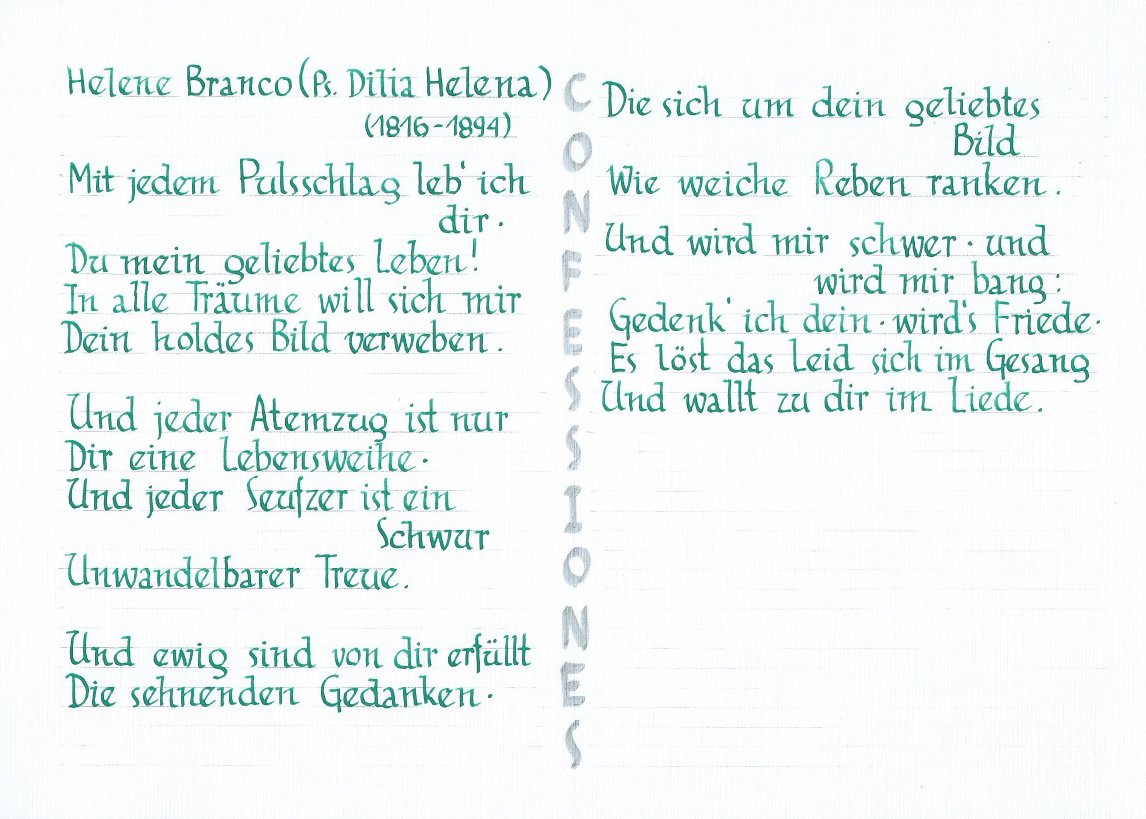 Helene Branco (Ps. Dilia Helena)
(1816-1894)
Mit jedem Pulsschlag leb' ich
dir.
Du mein geliebtes Leben!
In alle Träume will sich mir
Dein holdes Bild verweben.
Und jeder Atemzug ist nur
Dir eine Lebensweihe.
Und jeder Seufzer ist ein
Schwur
Unwandelbarer Treue.
Und ewig sind von dir erfüllt
Die sehnenden Gedanken.
CONFESSIONES
Die sich um dein geliebtes
Bild
Wie weiche Reben ranken.
Und wird mir schwer. und
wird mir bang:
Gedenk' ich dein. wird's Friede.
Es löst das Leid sich im Gesang
Und wallt zu dir im Liede.